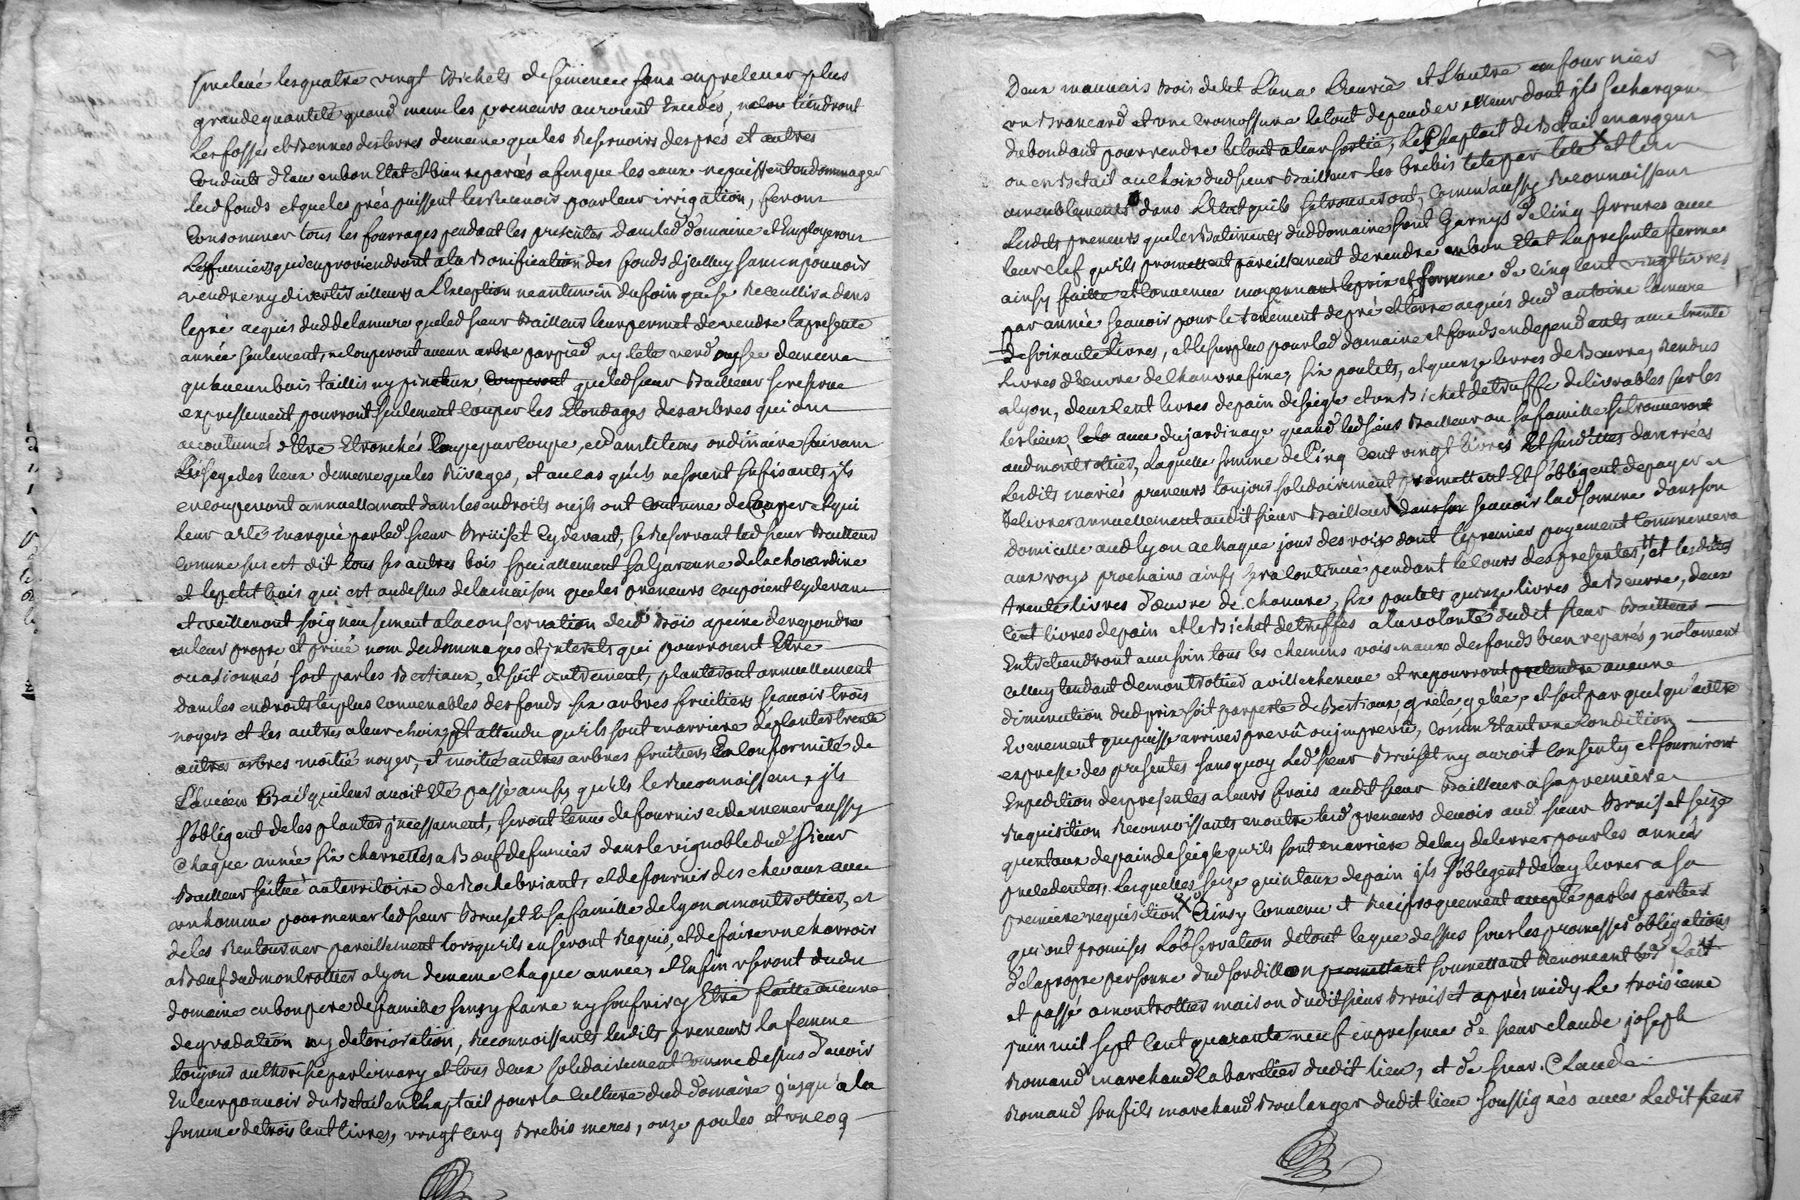 prelevé les quatre vingt Bichets de semence sans en prelever plus
grande quantité quand meme les preneurs auroient Excedés, tiendront
Les fossés et Bennes des terres de meme que les Reservoirs des prés et autres
Conduits d'Eau en bon Etat et bien reparés afin que les eaux ne puissent endommager
lesd fonds et que les prés puissent les Recevoir pour leur irrigation, feront
Consommer tous les fourrages pendant les presentes dans led domaine et Employeront
Les fumiers qui en proviendront a la Bonification des fonds d'jcelluy sans en pouvoir
vendre ny divertir ailleurs a L'Exception neantmoins du foin qui se Recœullira dans
le pré acquis dud delamure que led sieur Bailleur leur permet de vendre la presente
année seulement, ne Couperont aucun arbre par pied ny tete verd ou sec de meme
qu'aucun bois taillis ny pineteux Couperont que led sieur Bailleur se reserve
expressement pourront seulement Couper les Elondages des arbres qui ont
accoutumé d'Etre Etronchés Coupe par Coupe, et dans le tems ordinaire suivant
L'usage des lieux de meme que les Rivages, et au cas qu'ils ne soient sufisants jls
en couperont annuellement dans les endroits ou jls ont Coutume de Couper et qui
leur a été marqué par led sieur Bruiset Cy devant, se Reservant led sieur Bailleur
comme sus est dit tous ses autres bois specialement sa Garenne de la chovardine
et le petit bois qui est au dessus de la maison que les preneurs coupoient cy devant
et veilleront soigneusement a la conservation desd Bois a peine d'en repondre
en leur propre et privé nom des dommages et interets qui pourroient Etre
occasionnés soit par les Bestiaux, et soit autrement, planteront annuellement
dans les endroits les plus convenables des fonds six arbres fruitiers sçavoir trois
noyers et les autres a leur choix, Et attendu qu'ils sont en arriere de planter trente
autres arbres moitié noyer, et moitié autres arbres fruitiers En Conformité de
L'ancien Bail qui leur avoit Eté passé ainsy qu'ils le Reconnoissent, jls
s'obligent de les planter jncessament, seront tenus de fournir et de mener aussy
Chaque année six charrettes a Bœuf de fumier dans le vignoble dud sieur
Bailleur scitué au territoire de Rochebriant, et de fournir des chevaux avec
un homme pour mener led sieur Bruiset Et sa famille de lyon a montrottier, et
de les Rentourner pareillement lorsqu'ils en seront Requis, et de faire un charroir
a Bœuf dud montrottier a lyon de meme chaque année, et Enfin useront dudit
domaine en bon pere de famille sans y faire ny soufrir y Etre faitte aucune
degradation ny deterioration, Reconnoissants lesdits preneurs la femme
toujours authorisée par le mary et tous deux solidairement comme dessus d'avoir
En leur pouvoir du Betail en Chaptail pour la Culture dud domaine jusqu'a la
somme de trois Cent livres, vingt Cinq Brebis meres, onze poules et un coq
Deux mauvais Bois de lit L'un a L'euvrié et L'autre en fournier
un Brancard et une le tout de peu de valleur dont jls se chargent
d'abondant pour rendre le tout a leur sortie, Le Chaptail de Betail en argent
ou en Betail au choix dud sieur Bailleur les Brebis tete par tete et leur
ameublements dans L'Etat qu'ils se trouveront, Comm'aussy Reconnoissent
Lesdits preneurs que les Batiments dud domaine sont Garnys de cinq serrures avec
leur clef qu'ils promettent pareillement de rendre en bon Etat La presente ferme
ainsy faitte et Convenue moyennant le prix et somme de Cinq Cent vingt livres
par année sçavoir pour le tenement de pré et terre acquis dud antoine lamure
de soixante livres, et le surplus pour led domaine et fonds en dependants avec trente
Livres d'Œuvre de Chanvre fine, six poulets, et quinze livres de Beurre, Rendus
a lyon, deux Cent livres de pain de seigle et un Bichet de truffe delivrables sur les
lieux avec du jardinage quand led sieur Bailleur ou sa famille se trouveront
aud montrottier, Laquelle somme de Cinq Cent vingt livres Et susdittes danrrées
Lesdits mariés preneurs toujours solidairement promettent Et s'obligent de payer et
delivrer annuellement audit sieur Bailleur sçavoir lad somme dans son
domicille aud lyon a chaque jour des roix dont le premier payement Commencera
aux roys prochains ainsy sera Continué pendant le Cours des presentes, et lesdits
trente livres d'œuvre de chanvre, six poulets quinze livres de Beurre, deux
Cent livres de pain et le Bichet de truffes a la volonté dudit sieur Bailleur
Entretiendront avec soin tous les chemins voisinaux desd fonds bien reparés, notament
celluy tendant de montrottier a villechenève et ne pourront pretendre aucune
diminution dud prix soit par perte de Bestiaux, grele, gelée, et soit par quelqu'autre
Evenement que puisse arriver prevû ou jmprevû, Comm'Etant une Condition
expresse des presentes sans quoy Led sieur Bruiset n'y auroit Consenty et fourniront
Expedition des presentes a leurs frais audit sieur Bailleur a sa premiere
Requisition Reconnoissants en outre lesd preneurs devoir aud sieur Bruiset seize
quintaux de pain de seigle qu'ils sont en arriere de luy delivrer pour les années
precedentes, Lesquelles seize quintaux de pain jls s'obligent de luy livrer a sa
premiere requisition Ainsy Convenu et Reciproquement accepté par les parties
qui ont promises L'observation de tout le que dessus sous les promesses obligations
de la propre personne dud sordillon promettant soumettant Renonceant fait
et passé a montrottier maison dudit sieur Bruiset après midy Le troisieme
juin mil sept Cent quarante neuf en presence de sieur claude joseph
Romand marchand cabaretier dudit lieu, et de sieur Claude
Romand son fils marchand Boulanger dudit lieu soussignés avec Ledit sieur